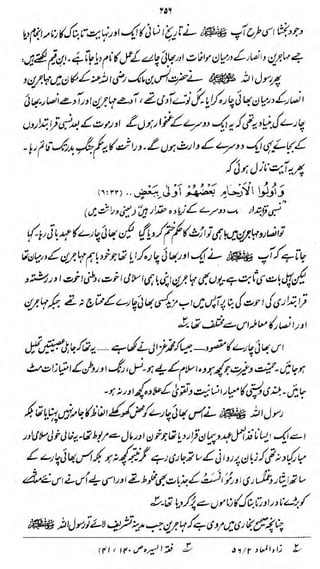 ۲۵۶
وجود بخشا اسی طرح آپ ﷺ نے تاریخ انسانی کا ایک اور نہایت تابناک کارنامہ انجام دیا
جسے مہاجرین و انصار کے درمیان مواخات اور بھائی چارے کے عمل کا نام دیا جاتا ہے۔ ابن قیم لکھتے ہیں:
پھر رسول اللہ ﷺ نے حضرت انس بن مالک رضی اللہ عنہ کے مکان میں مہاجرین و
انصار کے درمیان بھائی چارہ کرایا۔ کل نوے آدمی تھے، آدھے مہاجرین اور آدھے انصار۔ بھائی
چارے کی بنیاد یہ تھی کہ یہ ایک دوسرے کے غمخوار ہوں گے اور موت کے بعد نسبی قرابتداروں
کے بجائے یہی ایک دوسرے کے وارث ہوں گے۔ وراثت کا یہ حکم جنگ بدر تک قائم رہا۔
پھر یہ آیت نازل ہوئی کہ
وَأُولُوا الْأَرْحَامِ بَعْضُهُمْ أَوْلَىٰ بِبَعْضٍ .. (۶:۳۳)
نسبی قرابتدار ایک دوسرے کے زیادہ حقدار ہیں (یعنی وراثت میں)
تو انصار و مہاجرین میں باہمی توارُث کا حکم ختم کر دیا گیا لیکن بھائی چارے کا عہد باقی رہا۔ کہا
جاتا ہے کہ آپ ﷺ نے ایک اور بھائی چارہ کرایا تھا جو خود باہم مہاجرین کے درمیان تھا
لیکن پہلی بات ہی ثابت ہے۔ یوں بھی مہاجرین اپنی باہمی اسلامی اخوت، وطنی اخوت اور رشتہ و
قرابتداری کی اخوت کی بنا پر آپس میں اب مزید کسی بھائی چارے کے محتاج نہ تھے جبکہ مہاجرین
اور انصار کا معاملہ اس سے مختلف تھا۔ ۲
اس بھائی چارے کا مقصود — جیسا کہ محمد غزالی نے لکھا ہے — یہ تھا کہ جاہلی عصبیتیں تحلیل
ہو جائیں۔ حمیت و غیرت جو کچھ ہو وہ اسلام کے لیے ہو۔ نسل، رنگ اور وطن کے امتیازات مٹ
جائیں۔ بلندی و پستی کا معیار انسانیت و تقویٰ کے علاوہ کچھ اور نہ ہو۔
رسول اللہ ﷺ نے اس بھائی چارے کو محض کھوکھلے الفاظ کا جامہ نہیں پہنایا تھا بلکہ
اسے ایک ایسا نافذ العمل عہد و پیمان قرار دیا تھا جو خون اور مال سے مربوط تھا۔ یہ خالی خولی سلامی اور
مبارکباد نہ تھی کہ زبان پر روانی کے ساتھ جاری رہے مگر نتیجہ کچھ نہ ہو بلکہ اس بھائی چارے کے
ساتھ ایثار و غمگساری اور مُوانَسَت کے جذبات بھی مخلوط تھے اور اسی لیے اس نے اس نئے معاشرے
کو بڑے نادر اور تابناک کارناموں سے پُر کر دیا تھا۔ ۳
چنانچہ صحیح بخاری میں مروی ہے کہ مہاجرین جب مدینہ تشریف لائے تو رسول اللہ ﷺ
۲ زاد المعاد ۲/۵۶ ۳ فقہ السیرہ ص ۱۴۰، ۱۴۱